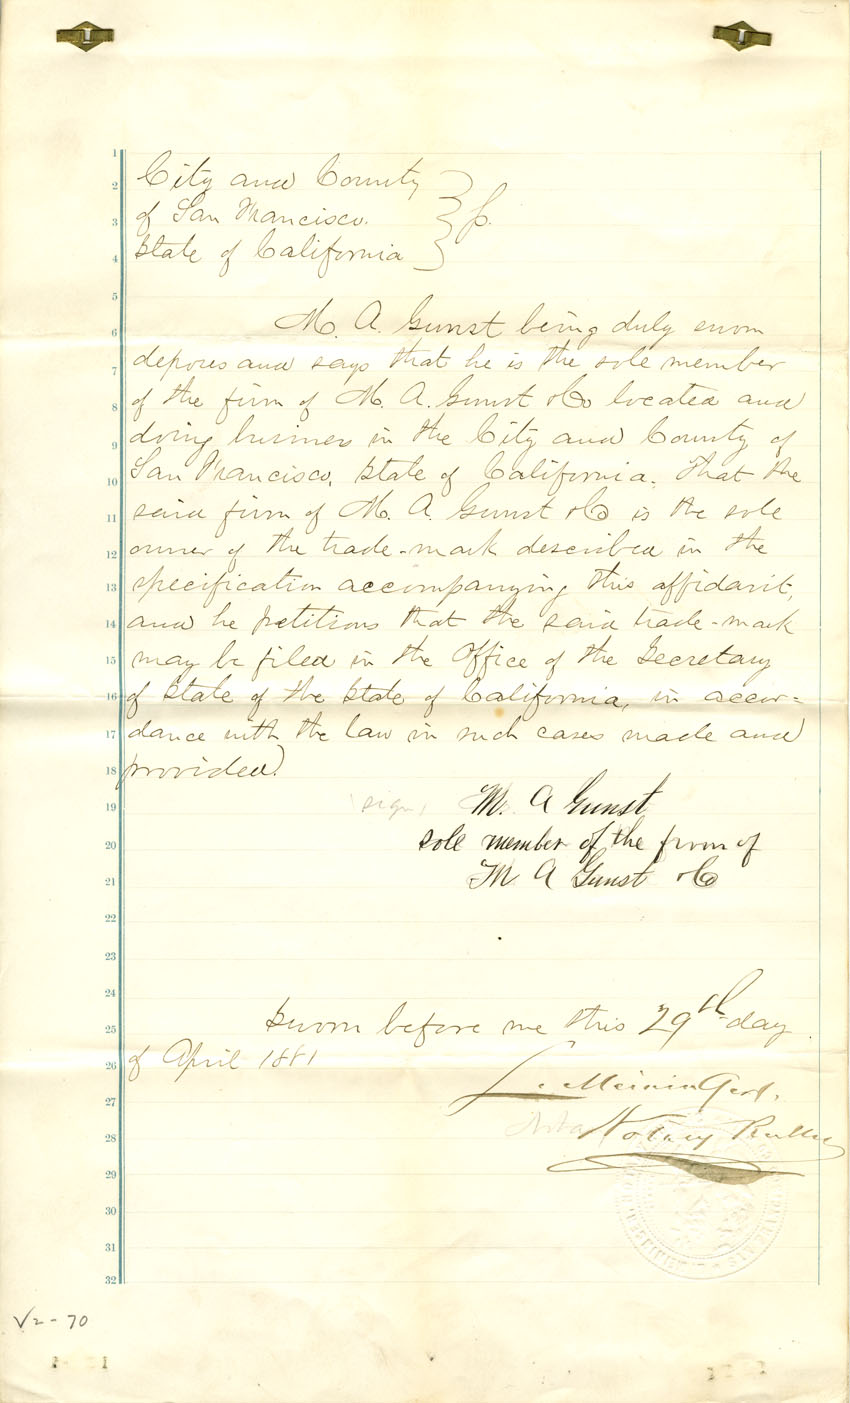 City and County
of San Francisco. } ss.
State of California
M. A. Gunst being duly sworn
deposes and says that he is the sole member
of the firm of M. A. Gunst & Co located and
doing business in the City and County of
San Francisco, State of California. That the
said firm of M. A. Gunst & Co is the sole
owner of the trade-mark described in the
specification accompanying this affidavit,
and he petitions that the said trade-mark
may be filed in the Office of the Secretary
of State of the State of California, in accor-
dance with the law in such cases made and
provided.
sign M. A Gunst
sole member of the firm of
M A Gunst & Co
Sworn before me this 29th day
of April 1881
Notary Public
V2-70
1
2
3
4
5
6
7
8
9
10
11
12
13
14
15
16
17
18
19
20
21
22
23
24
25
26
27
28
29
30
31
32